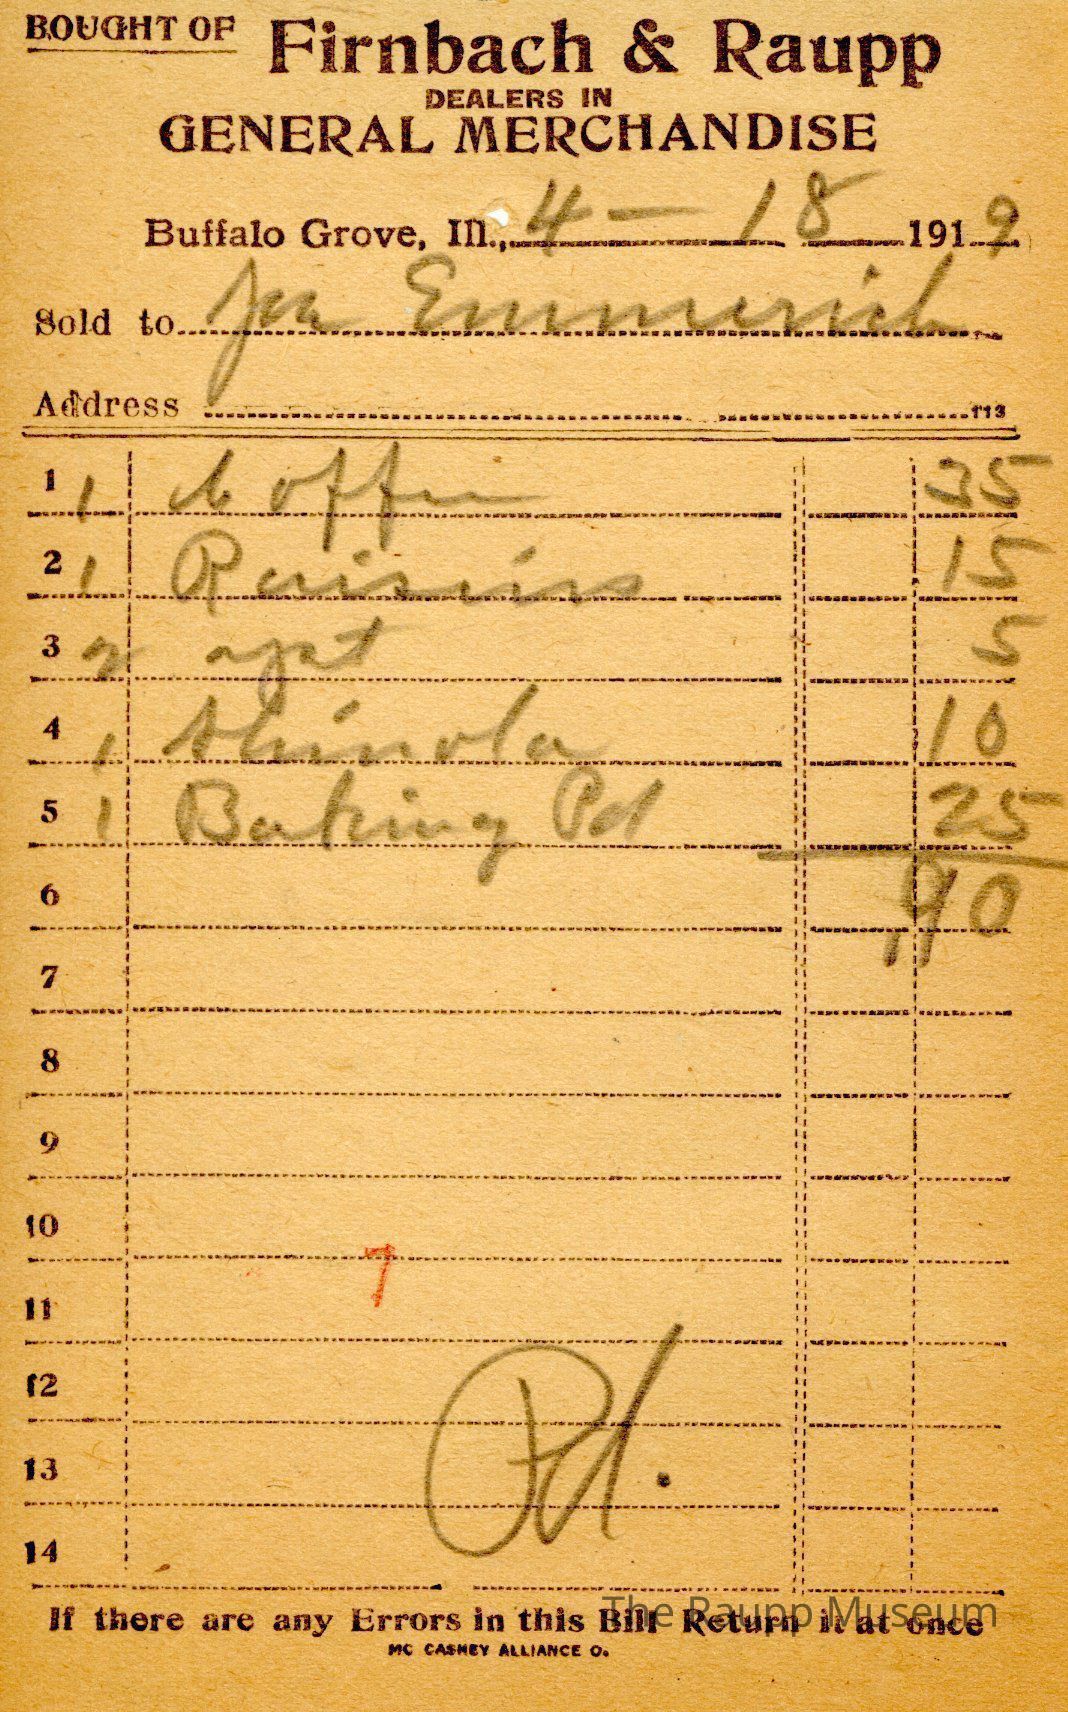 BOUGHT OF Firnbach & Raupp
DEALERS IN
GENERAL MERCHANDISE
Buffalo Grove, Ill., 4 - 18 1919
Sold to Joe Emmerich
Address 113
1 1 Coffee 35
2 1 Raisins 15
3 2 yst 5
4 1 Shinola 10
5 1 Baking Pd 25
6 90
7
8
9
10
7
11
12
13
Pd.
14
If there are any Errors in this Bill Return it at once
The Raupp Museum
MC CASKEY ALLIANCE O.